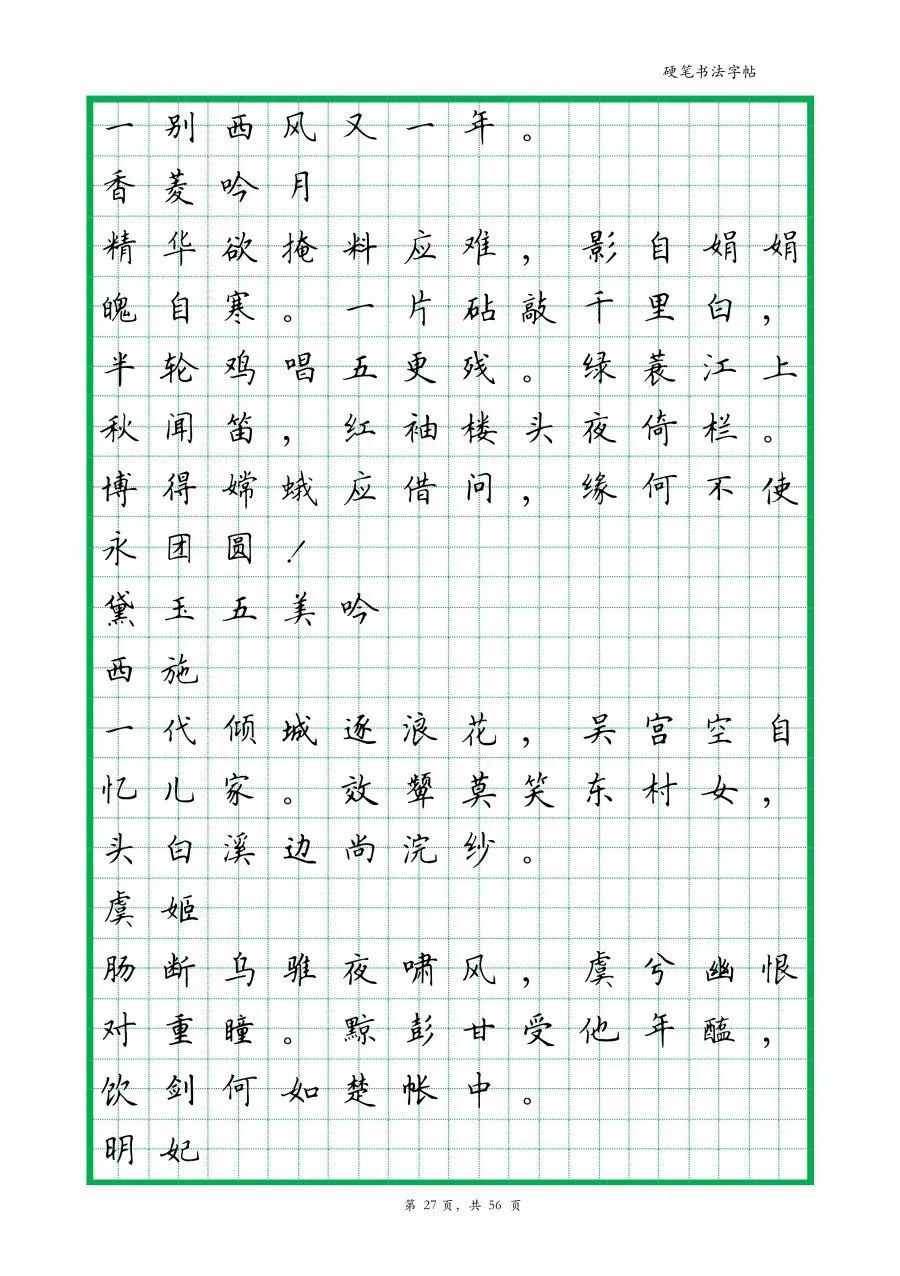 硬笔书法字帖
一别西风又一年。
香菱吟月
精华欲掩料应难，影自娟娟
魄自寒。一片砧敲千里白，
半轮鸡唱五更残。绿蓑江上
秋闻笛，红袖楼头夜倚栏。
博得嫦娥应借问，缘何不使
永团圆！
黛玉五美吟
西施
一代倾城逐浪花，吴宫空自
忆儿家。效颦莫笑东村女，
头白溪边尚浣纱。
虞姬
肠断乌骓夜啸风，虞兮幽恨
对重瞳。黥彭甘受他年醢，
饮剑何如楚帐中。
明妃
第 27 页，共 56 页